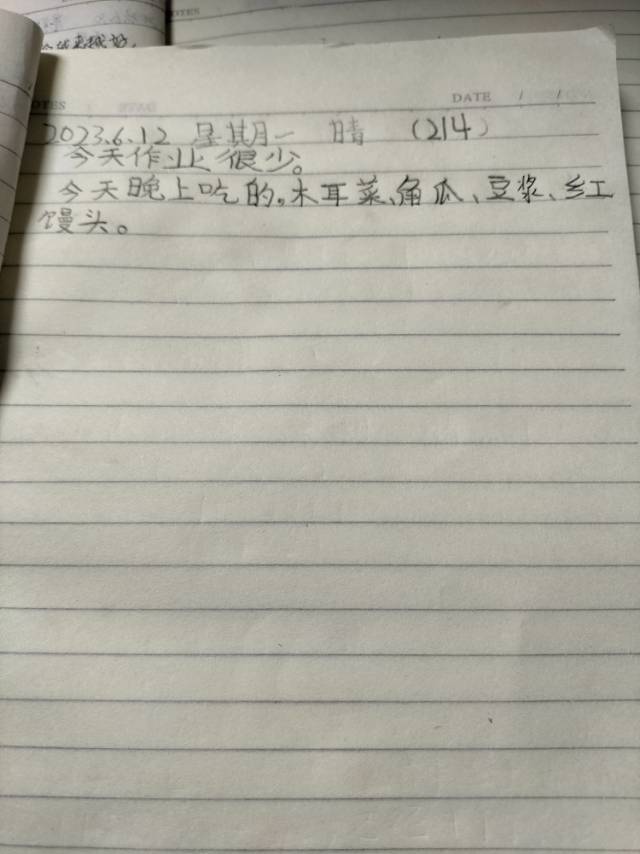 NOTES
越来越好。
NOTES
DATE / /
2023.6.12 星期一 晴 (214)
今天作业很少。
今天晚上吃的。木耳菜、角瓜、豆浆、红
馒头。